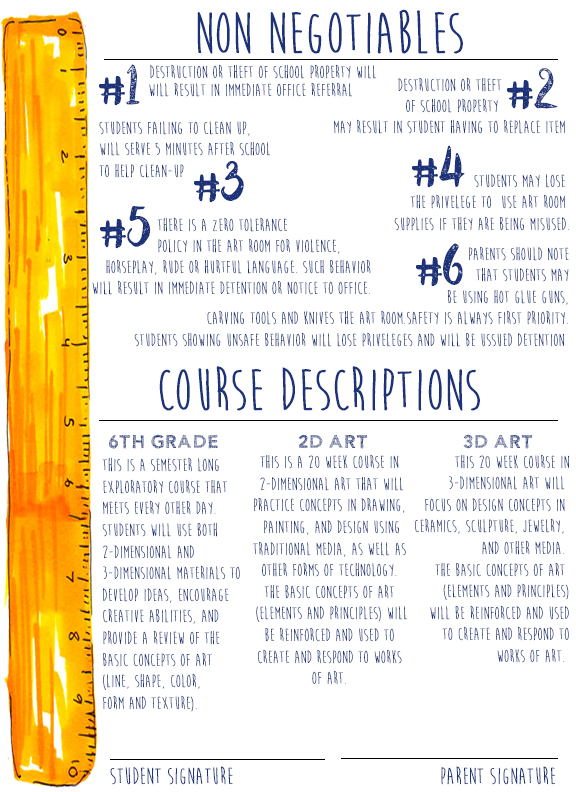 NON NEGOTIABLES
#1 DESTRUCTION OR THEFT OF SCHOOL PROPERTY WILL
WILL RESULT IN IMMEDIATE OFFICE REFERRAL
#2
DESTRUCTION OR THEFT
OF SCHOOL PROPERTY
MAY RESULT IN STUDENT HAVING TO REPLACE ITEM
STUDENTS FAILING TO CLEAN UP,
WILL SERVE 5 MINUTES AFTER SCHOOL
TO HELP CLEAN-UP
#3
#4
STUDENTS MAY LOSE
THE PRIVELEGE TO USE ART ROOM
SUPPLIES IF THEY ARE BEING MISUSED.
#5 THERE IS A ZERO TOLERANCE
POLICY IN THE ART ROOM FOR VIOLENCE,
HORSEPLAY, RUDE OR HURTFUL LANGUAGE. SUCH BEHAVIOR
WILL RESULT IN IMMEDIATE DETENTION OR NOTICE TO OFFICE.
#6 PARENTS SHOULD NOTE
THAT STUDENTS MAY
BE USING HOT GLUE GUNS,
CARVING TOOLS AND KNIVES THE ART ROOM.SAFETY IS ALWAYS FIRST PRIORITY.
STUDENTS SHOWING UNSAFE BEHAVIOR WILL LOSE PRIVELEGES AND WILL BE USSUED DETENTION
COURSE DESCRIPTIONS
6TH GRADE
THIS IS A SEMESTER LONG
EXPLORATORY COURSE THAT
MEETS EVERY OTHER DAY.
STUDENTS WILL USE BOTH
2-DIMENSIONAL AND
3-DIMENSIONAL MATERIALS TO
DEVELOP IDEAS, ENCOURAGE
CREATIVE ABILITIES, AND
PROVIDE A REVIEW OF THE
BASIC CONCEPTS OF ART
(LINE, SHAPE, COLOR,
FORM AND TEXTURE).
2D ART
THIS IS A 20 WEEK COURSE IN
2-DIMENSIONAL ART THAT WILL
PRACTICE CONCEPTS IN DRAWING,
PAINTING, AND DESIGN USING
TRADITIONAL MEDIA, AS WELL AS
OTHER FORMS OF TECHNOLOGY.
THE BASIC CONCEPTS OF ART
(ELEMENTS AND PRINCIPLES) WILL
BE REINFORCED AND USED TO
CREATE AND RESPOND TO WORKS
OF ART.
3D ART
THIS 20 WEEK COURSE IN
3-DIMENSIONAL ART WILL
FOCUS ON DESIGN CONCEPTS IN
CERAMICS, SCULPTURE, JEWELRY,
AND OTHER MEDIA.
THE BASIC CONCEPTS OF ART
(ELEMENTS AND PRINCIPLES)
WILL BE REINFORCED AND USED
TO CREATE AND RESPOND TO
WORKS OF ART.
STUDENT SIGNATURE
PARENT SIGNATURE
0
2
3
4
5
6
7
8
9
10